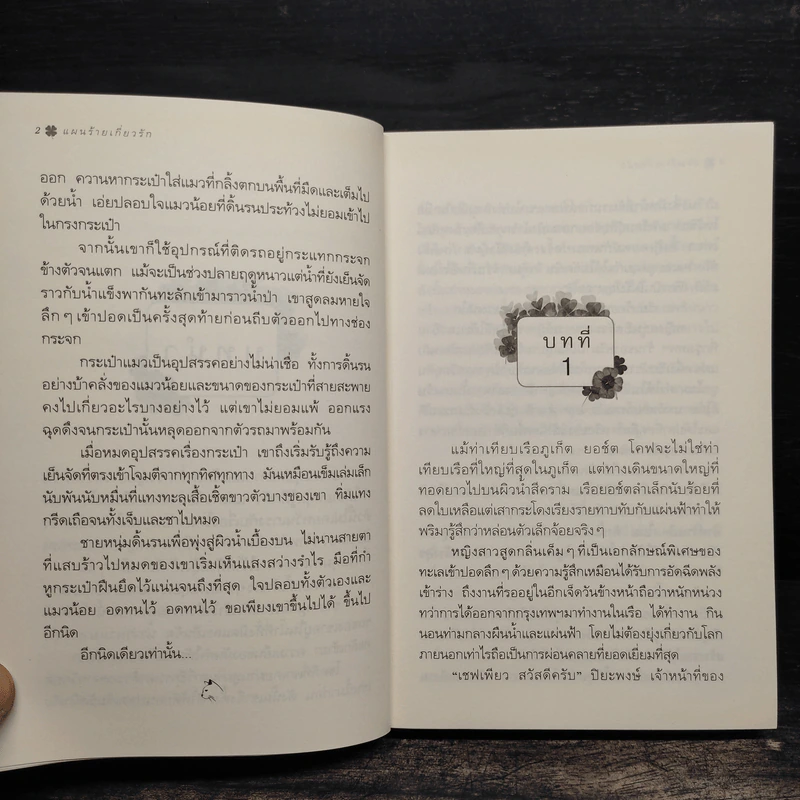 2 แผนร้ายเกี่ยวรัก
ออก ควานหากระเป๋าใส่แมวที่กลิ้งตกบนพื้นที่มืดและเต็มไป
ด้วยน้ำ เอ่ยปลอบใจแมวน้อยที่ดิ้นรนประท้วงไม่ยอมเข้าไป
ในกรงกระเป๋า
จากนั้นเขาก็ใช้อุปกรณ์ที่ติดรถอยู่กระแทกกระจก
ข้างตัวจนแตก แม้จะเป็นช่วงปลายฤดูหนาวแต่น้ำที่ยังเย็นจัด
ราวกับน้ำแข็งพากันทะลักเข้ามาราวน้ำป่า เขาสูดลมหายใจ
ลึกๆ เข้าปอดเป็นครั้งสุดท้ายก่อนถีบตัวออกไปทางช่อง
กระจก
กระเป๋าแมวเป็นอุปสรรคอย่างไม่น่าเชื่อ ทั้งการดิ้นรน
อย่างบ้าคลั่งของแมวน้อยและขนาดของกระเป๋าที่สายสะพาย
คงไปเกี่ยวอะไรบางอย่างไว้ แต่เขาไม่ยอมแพ้ ออกแรง
ฉุดดึงจนกระเป๋านั้นหลุดออกจากตัวรถมาพร้อมกัน
เมื่อหมดอุปสรรคเรื่องกระเป๋า เขาถึงเริ่มรับรู้ถึงความ
เย็นจัดที่ตรงเข้าโจมตีจากทุกทิศทุกทาง มันเหมือนเข็มเล่มเล็ก
นับพันนับหมื่นที่แทงทะลุเสื้อเชิ้ตขาวตัวบางของเขา ทิ่มแทง
กรีดเถือจนทั้งเจ็บและชาไปหมด
ชายหนุ่มดิ้นรนเพื่อพุ่งสู่ผิวน้ำเบื้องบน ไม่นานสายตา
ที่แสบร้าวไปหมดของเขาเริ่มเห็นแสงสว่างรำไร มือที่กำ
หูกระเป๋าฝืนยึดไว้แน่นจนถึงที่สุด ใจปลอบทั้งตัวเองและ
แมวน้อย อดทนไว้ อดทนไว้ ขอเพียงเขาขึ้นไปได้ ขึ้นไป
อีกนิด
อีกนิดเดียวเท่านั้น...
บทที่
1
แม้ท่าเทียบเรือภูเก็ต ยอช์ต โคฟจะไม่ใช่ท่า
เทียบเรือที่ใหญ่ที่สุดในภูเก็ต แต่ทางเดินขนาดใหญ่ที่
ทอดยาวไปบนผิวน้ำสีคราม เรือยอช์ตลำเล็กนับร้อยที่
ลดใบเหลือแต่เสากระโดงเรียงรายทาบทับกับแผ่นฟ้าทำให้
พริมารู้สึกว่าหล่อนตัวเล็กจ้อยจริงๆ
หญิงสาวสูดกลิ่นเค็มๆ ที่เป็นเอกลักษณ์พิเศษของ
ทะเลเข้าปอดลึกๆ ด้วยความรู้สึกเหมือนได้รับการอัดฉีดพลัง
เข้าร่าง ถึงงานที่รออยู่ในอีกเจ็ดวันข้างหน้าถือว่าหนักหน่วง
ทว่าการได้ออกจากกรุงเทพฯมาทำงานในเรือ ได้ทำงาน กิน
นอนท่ามกลางผืนน้ำและแผ่นฟ้า โดยไม่ต้องยุ่งเกี่ยวกับโลก
ภายนอกเท่าไรถือเป็นการผ่อนคลายที่ยอดเยี่ยมที่สุด
“เชฟเพียว สวัสดีครับ” ปิยะพงษ์ เจ้าหน้าที่ของ